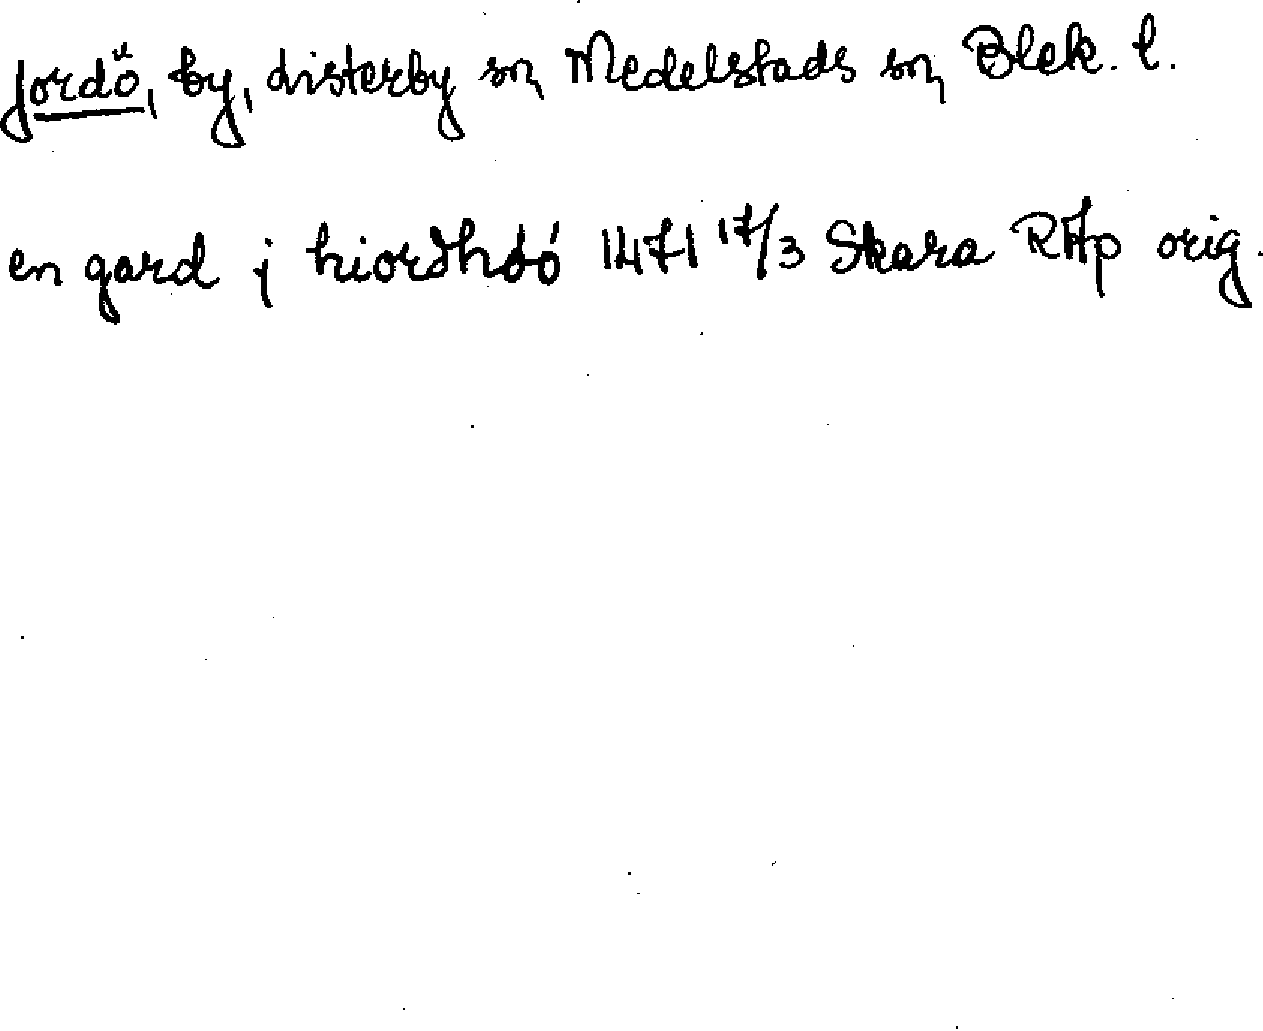 Jordö, by, Listerby sn, Medelstads sn, Blek. l.
en gard j hiordhóó 1471 17/3 Skara RAp orig.